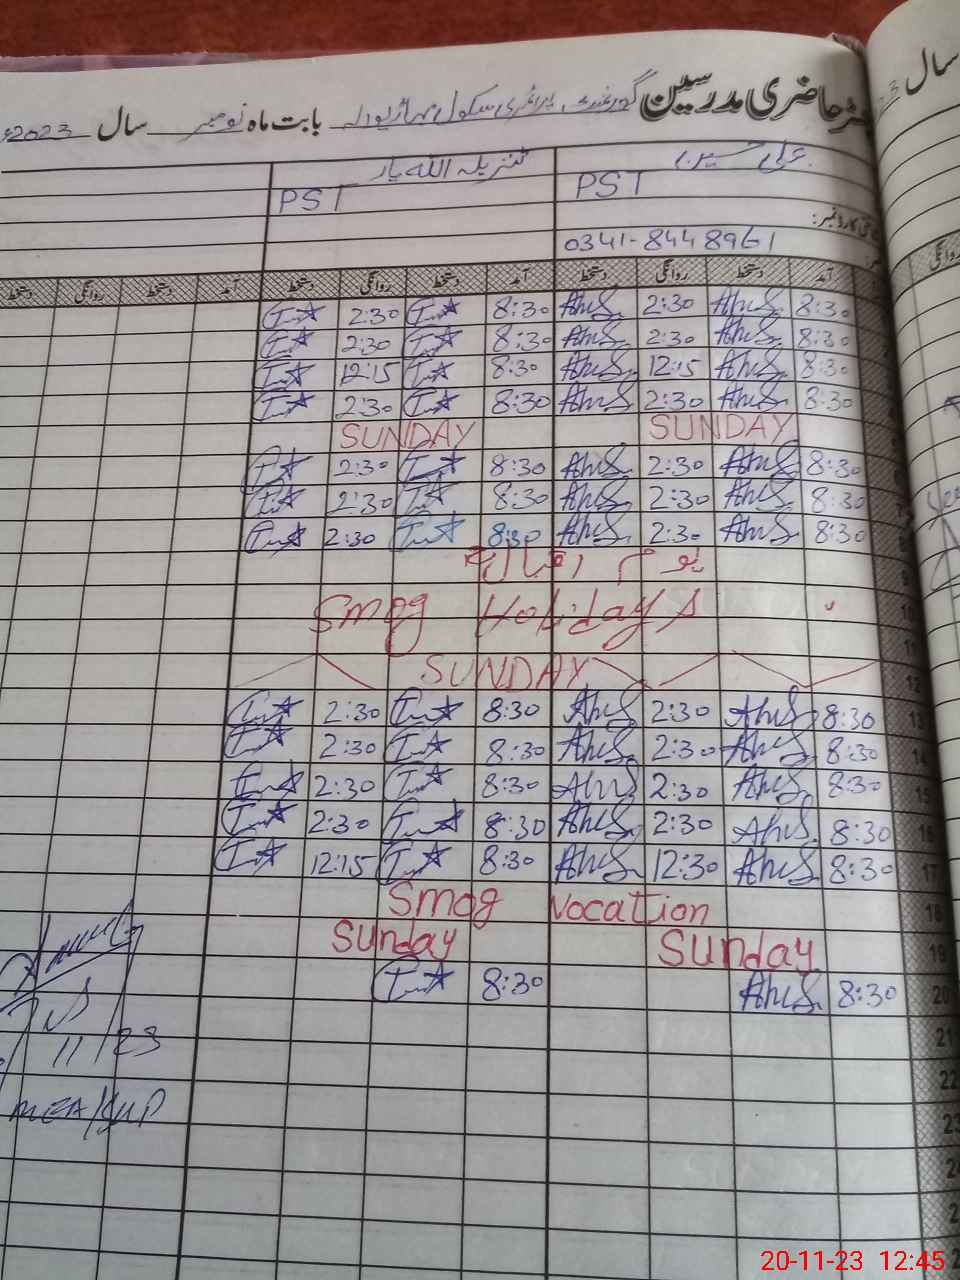 رجسٹر حاضری مدرسین گورنمنٹ پرائمری سکول بابت ماہ نومبر سال 2023ء
علی حسین تنزیلہ اللہ یار
PST PST
شناختی کارڈ نمبر:
0341-8448961
آمد دستخط روانگی دستخط آمد دستخط روانگی دستخط آمد دستخط روانگی دستخط
8:30 AhS 2:30 AhS 8:30 2:30
8:30 AhS 2:30 AhS 8:30 2:30
8:30 AhS 12:15 AhS 8:30 12:15
8:30 AhS 2:30 AhS 8:30 2:30
SUNDAY SUNDAY
8:30 AhS 2:30 AhS 8:30 2:30
8:30 AhS 2:30 AhS 8:30 2:30
8 8:30 AhS 2:30 AhS 8:30 2:30
9 یوم اقبال
10 Smog Holidays
11
12 SUNDAY
13 8:30 AhS 2:30 AhS 8:30 2:30
14 8:30 AhS 2:30 AhS 8:30 2:30
15 8:30 AhS 2:30 AhS 8:30 2:30
16 8:30 AhS 2:30 AhS 8:30 2:30
17 8:30 AhS 12:30 AhS 8:30 12:15
18 Smog vocation
19 Sunday Sunday
20 8:30 AhS 8:30
21
22
23
11/23
سال
روانگی
20-11-23 12:45